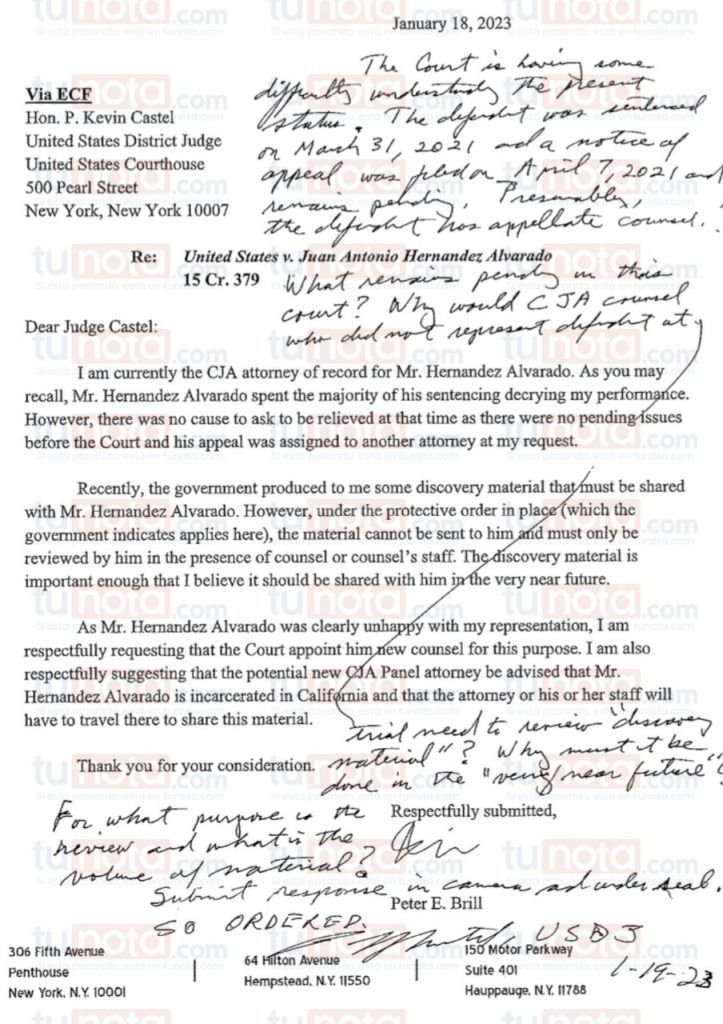 January 18, 2023
The Court is having some
difficulty understanding the present
status. The defendant was sentenced
on March 31, 2021 and a notice of
appeal was filed on April 7, 2021 and
remains pending. Presumably,
the defendant has appellate counsel.
Via ECF
Hon. P. Kevin Castel
United States District Judge
United States Courthouse
500 Pearl Street
New York, New York 10007
Re: United States v. Juan Antonio Hernandez Alvarado
15 Cr. 379
What remains pending in this
court? Why would CJA counsel
who did not represent defendant at
Dear Judge Castel:
I am currently the CJA attorney of record for Mr. Hernandez Alvarado. As you may
recall, Mr. Hernandez Alvarado spent the majority of his sentencing decrying my performance.
However, there was no cause to ask to be relieved at that time as there were no pending issues
before the Court and his appeal was assigned to another attorney at my request.
Recently, the government produced to me some discovery material that must be shared
with Mr. Hernandez Alvarado. However, under the protective order in place (which the
government indicates applies here), the material cannot be sent to him and must only be
reviewed by him in the presence of counsel or counsel's staff. The discovery material is
important enough that I believe it should be shared with him in the very near future.
As Mr. Hernandez Alvarado was clearly unhappy with my representation, I am
respectfully requesting that the Court appoint him new counsel for this purpose. I am also
respectfully suggesting that the potential new CJA Panel attorney be advised that Mr.
Hernandez Alvarado is incarcerated in California and that the attorney or his or her staff will
have to travel there to share this material.
trial need to review "discovery
material"? Why must it be
done in the "very near future"?
Thank you for your consideration.
For what purpose is the
review and what is the
volume of material?
Submit response in camera and under seal.
SO ORDERED.
USDJ
1-19-23
Respectfully submitted,
Peter E. Brill
306 Fifth Avenue
Penthouse
New York, N.Y. 10001
64 Hilton Avenue
Hempstead, N.Y. 11550
150 Motor Parkway
Suite 401
Hauppauge, N.Y. 11788
tunota.com
Si está pasando, está en tunota.com